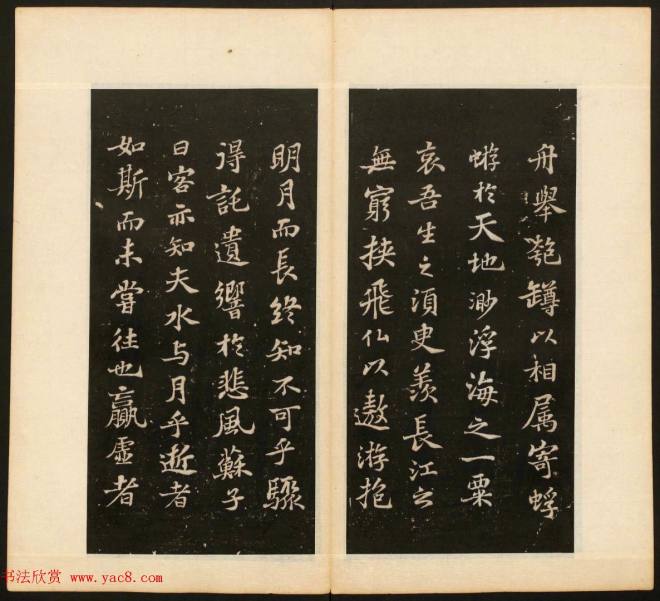 舟舉匏罇以相属寄蜉
蝣扵天地渺浮海之一粟
哀吾生之湏臾羨長江之
無窮挟飛仙以遨游抱
明月而長终知不可乎驟
得託遺響扵悲風蘇子
曰客亦知夫水与月乎逝者
如斯而未嘗往也贏虚者
书法欣赏 www.yac8.com